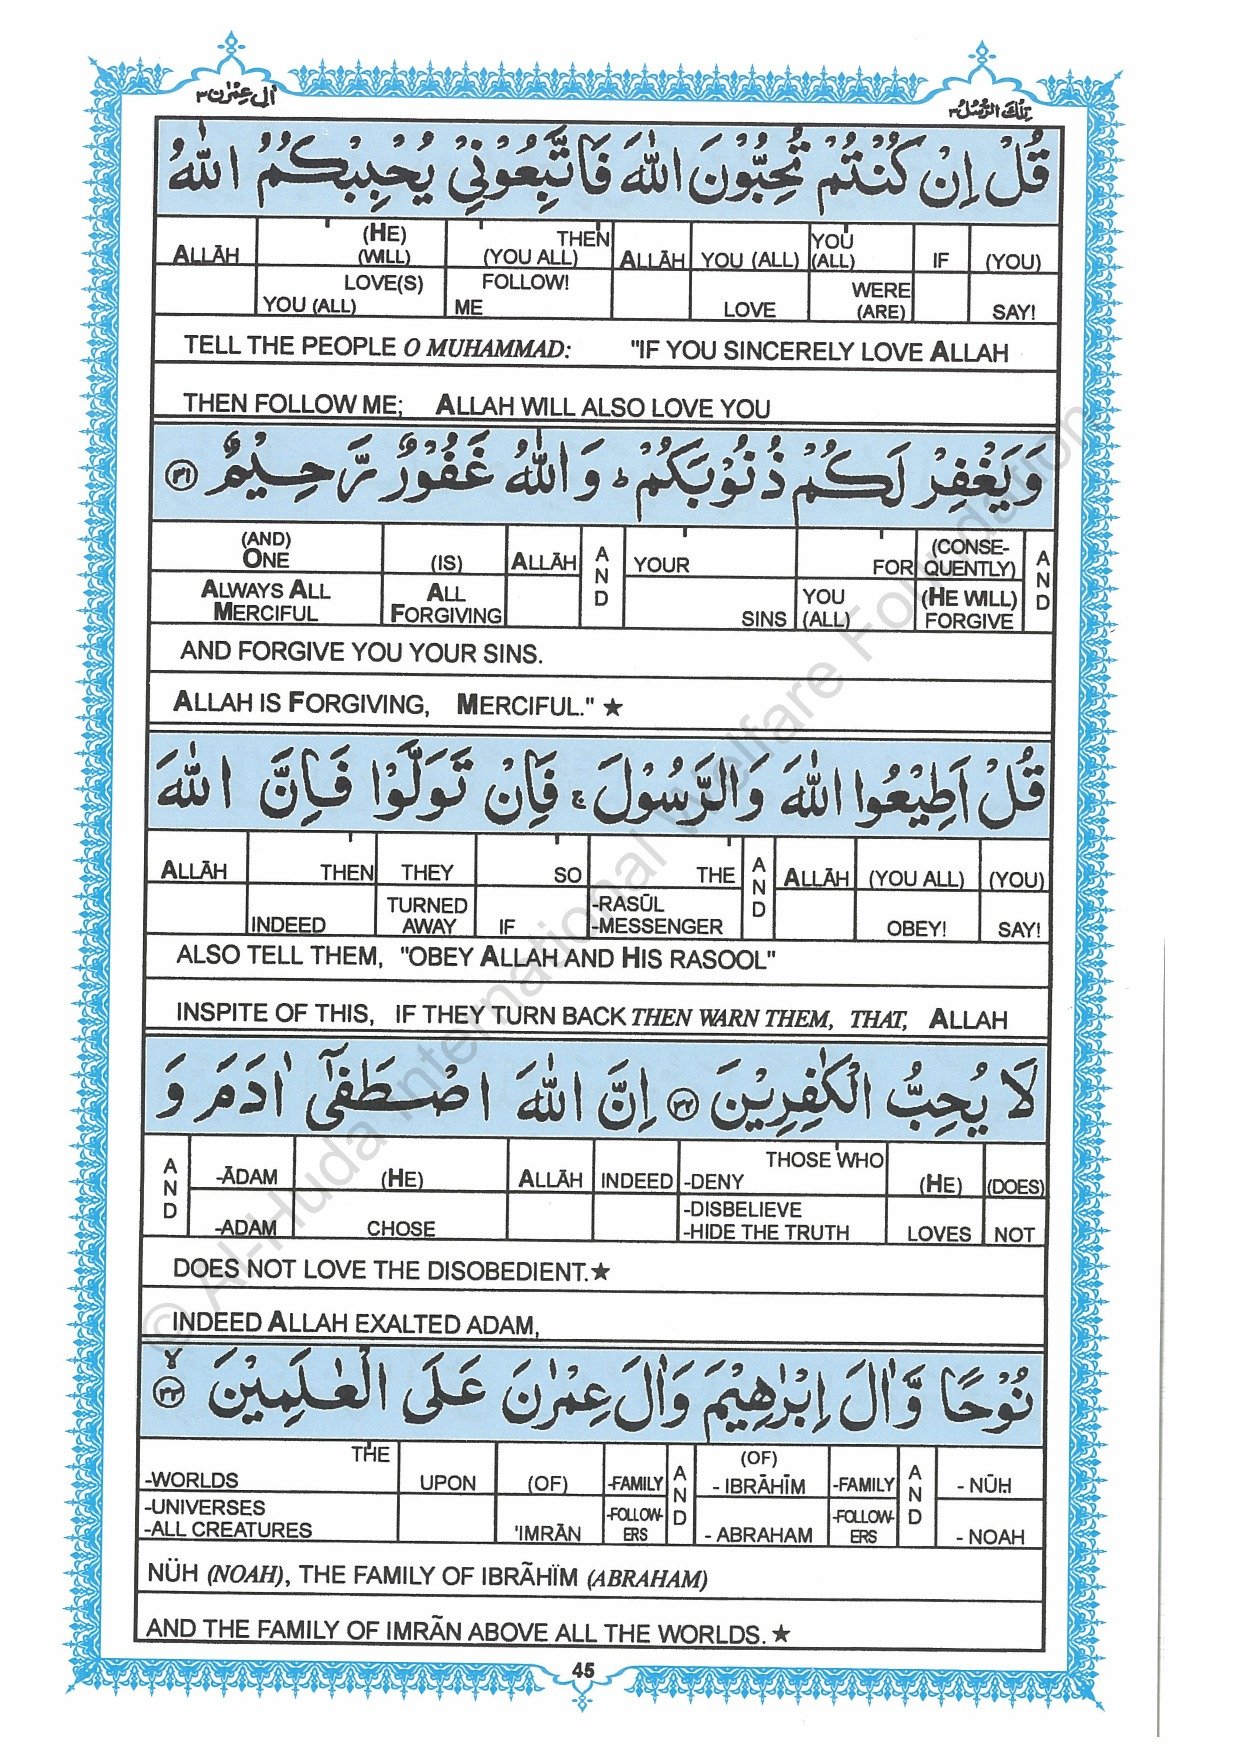 اٰلِ عِمْرٰن ٣
تِلْكَ الرُّسُلُ ٣
قُلْ اِنْ كُنْتُمْ تُحِبُّوْنَ اللّٰهَ فَاتَّبِعُوْنِيْ يُحْبِبْكُمُ اللّٰهُ
ALLĀH (HE) (WILL) THEN (YOU ALL) ALLĀH YOU (ALL) YOU (ALL) IF (YOU)
LOVE(S) YOU (ALL) FOLLOW! ME LOVE WERE (ARE) SAY!
TELL THE PEOPLE O MUHAMMAD: "IF YOU SINCERELY LOVE ALLAH
THEN FOLLOW ME; ALLAH WILL ALSO LOVE YOU
وَيَغْفِرْ لَكُمْ ذُنُوْبَكُمْ ؕ وَاللّٰهُ غَفُوْرٌ رَّحِيْمٌ ٣١
(AND) ONE (IS) ALLĀH AND YOUR FOR (CONSE-QUENTLY) AND
ALWAYS ALL MERCIFUL ALL FORGIVING SINS YOU (ALL) (HE WILL) FORGIVE
AND FORGIVE YOU YOUR SINS.
ALLAH IS FORGIVING, MERCIFUL." ★
قُلْ اَطِيْعُوا اللّٰهَ وَالرَّسُوْلَ ۚ فَاِنْ تَوَلَّوْا فَاِنَّ اللّٰهَ
ALLĀH THEN THEY SO THE AND ALLĀH (YOU ALL) (YOU)
INDEED TURNED AWAY IF -RASŪL -MESSENGER OBEY! SAY!
ALSO TELL THEM, "OBEY ALLAH AND HIS RASOOL"
INSPITE OF THIS, IF THEY TURN BACK THEN WARN THEM, THAT, ALLAH
لَا يُحِبُّ الْكٰفِرِيْنَ ٣٢ اِنَّ اللّٰهَ اصْطَفٰٓى اٰدَمَ وَ
AND -ĀDAM (HE) ALLĀH INDEED THOSE WHO -DENY (HE) (DOES)
-ADAM CHOSE -DISBELIEVE -HIDE THE TRUTH LOVES NOT
DOES NOT LOVE THE DISOBEDIENT.★
INDEED ALLAH EXALTED ADAM,
نُوْحًا وَّاٰلَ اِبْرٰهِيْمَ وَاٰلَ عِمْرٰنَ عَلَى الْعٰلَمِيْنَ ٣٣ ۙ
THE -WORLDS UPON (OF) -FAMILY AND (OF) - IBRĀHĪM -FAMILY AND - NŪḤ
-UNIVERSES -ALL CREATURES 'IMRĀN -FOLLOW-ERS - ABRAHAM -FOLLOW-ERS - NOAH
NÜH (NOAH), THE FAMILY OF IBRÃHÏM (ABRAHAM)
AND THE FAMILY OF IMRÃN ABOVE ALL THE WORLDS. ★
45
© Al-Huda International Welfare Foundation